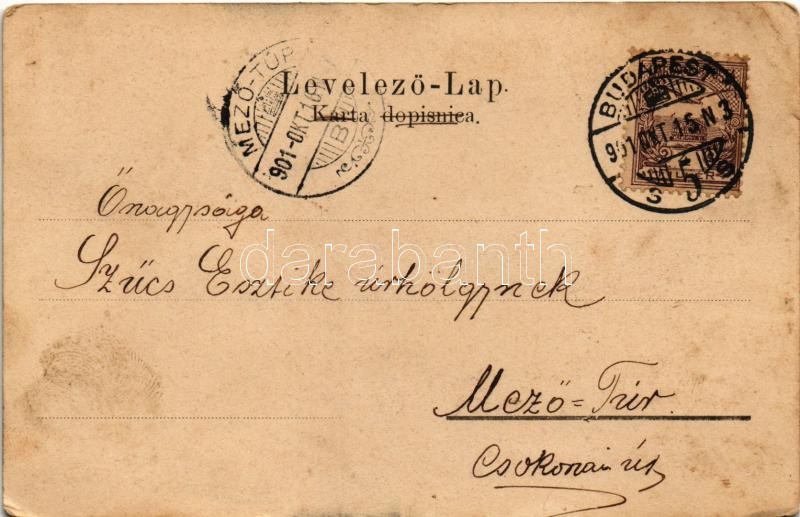 Levelező-Lap.
Karta dopisnica.
MEZŐ-TÚR
901 OKT. 16
BUDAPEST
901 OKT. 15. N 3
Őnagysága
Szűcs Esztike úrhölgynek
Mező=Túr.
Csokonai út
darabanth